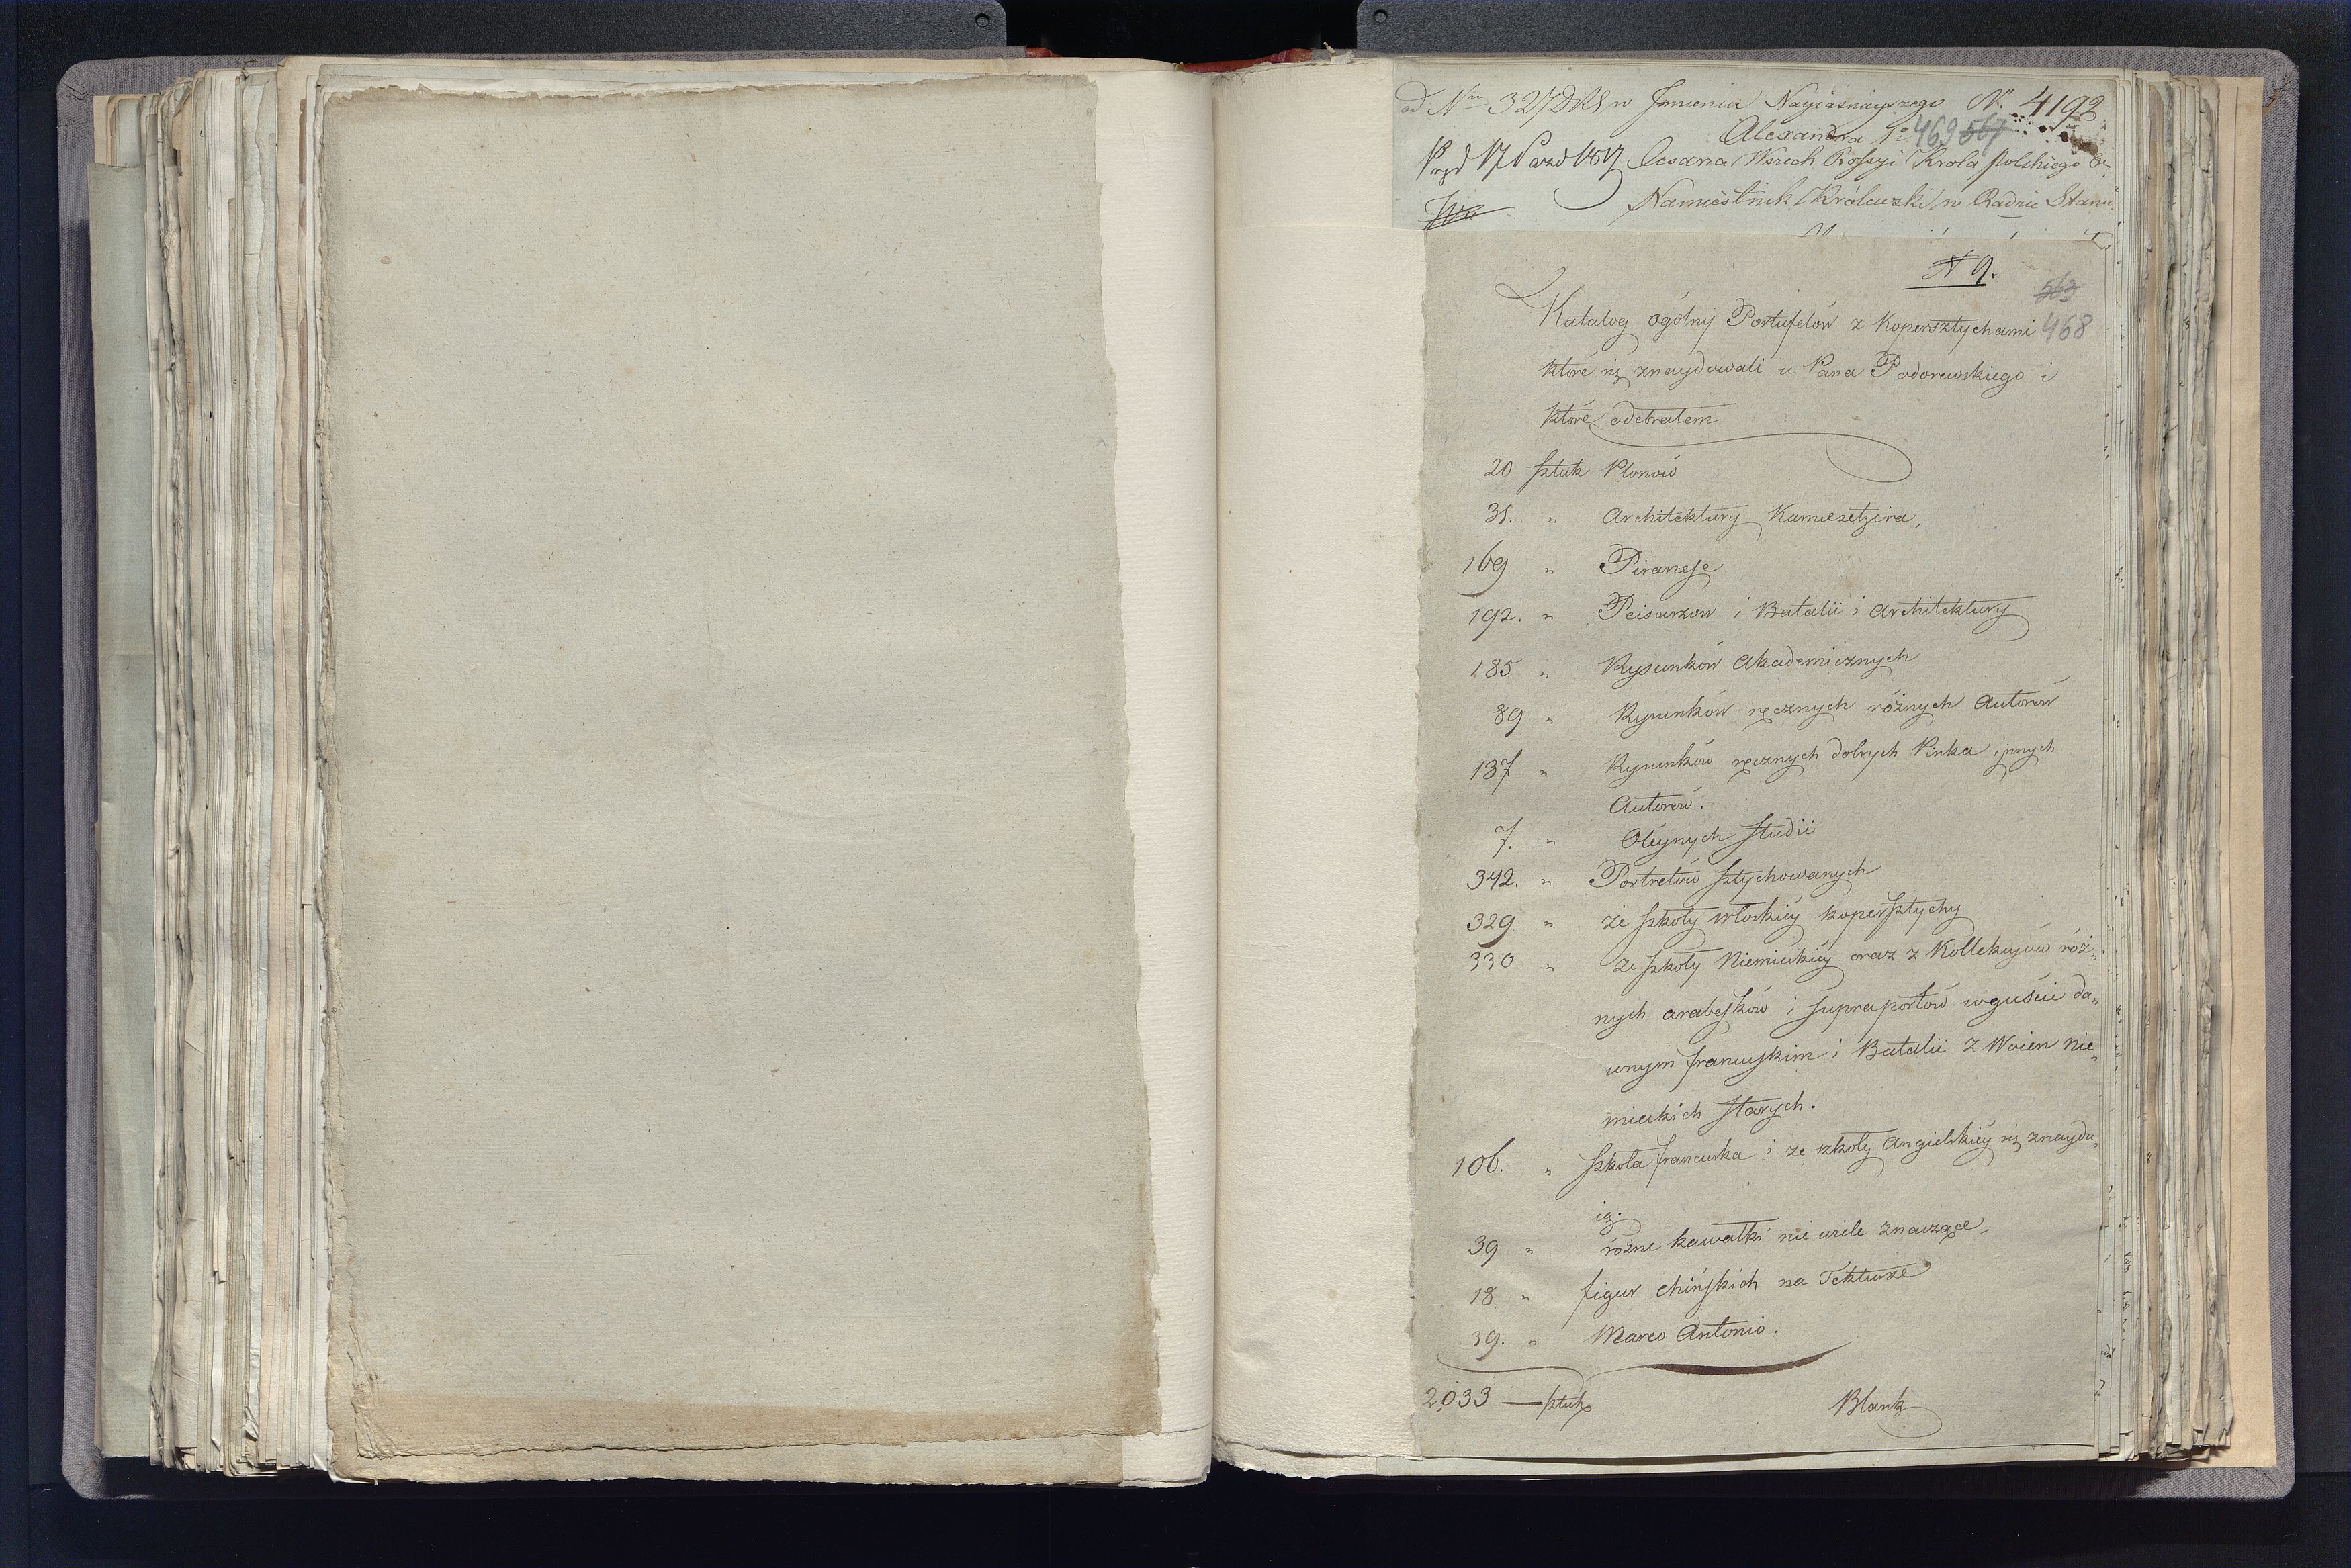 ad Nrm 327DKS w Jmieniu Nayiaśnieyszego N. 4192
Alexandra I° 469 567
17 Paźd 1817 Cesarza Wszech Rossyi Króla Polskiego &
Namiestnik Królewski w Radzie Stanu
N 9.
563
Katalog ogólny Portufelów z Kopersztychami 468
które się znaydowali u Pana Podorewskiego i
które odebratem
20 sztuk Planów
31. " Architektury Kamsetzira,
169. " Piranese
192. " Peisarzow i Batalii i Architektury
185 " Rysunków Akademicznych
89 " Rysunków ręcznych różnych Autorów
137 " Rysunków ręcznych dobrych Pinka ijnnych
Autorów.
7. " Oleynych studii
342. " Portretów sztychowanych
329 " że szkoły włoskiéy kopersztychy
330 " ze szkoły Niemieckiéy oraz z Kollekcyów róż„
nych arabesków i supraportów wguście da„
wnym francuskim i Batalii z Woien Nie„
mieckich starych.
106. " szkoła francuska i ze szkoły Angielskiéy się znaydu„
ią.
39 " różne kawałki nie wiele znaczące,
18 " figur chińskich na Tekturze
39. " Marco Antonio.
2,033 — sztuk Blank